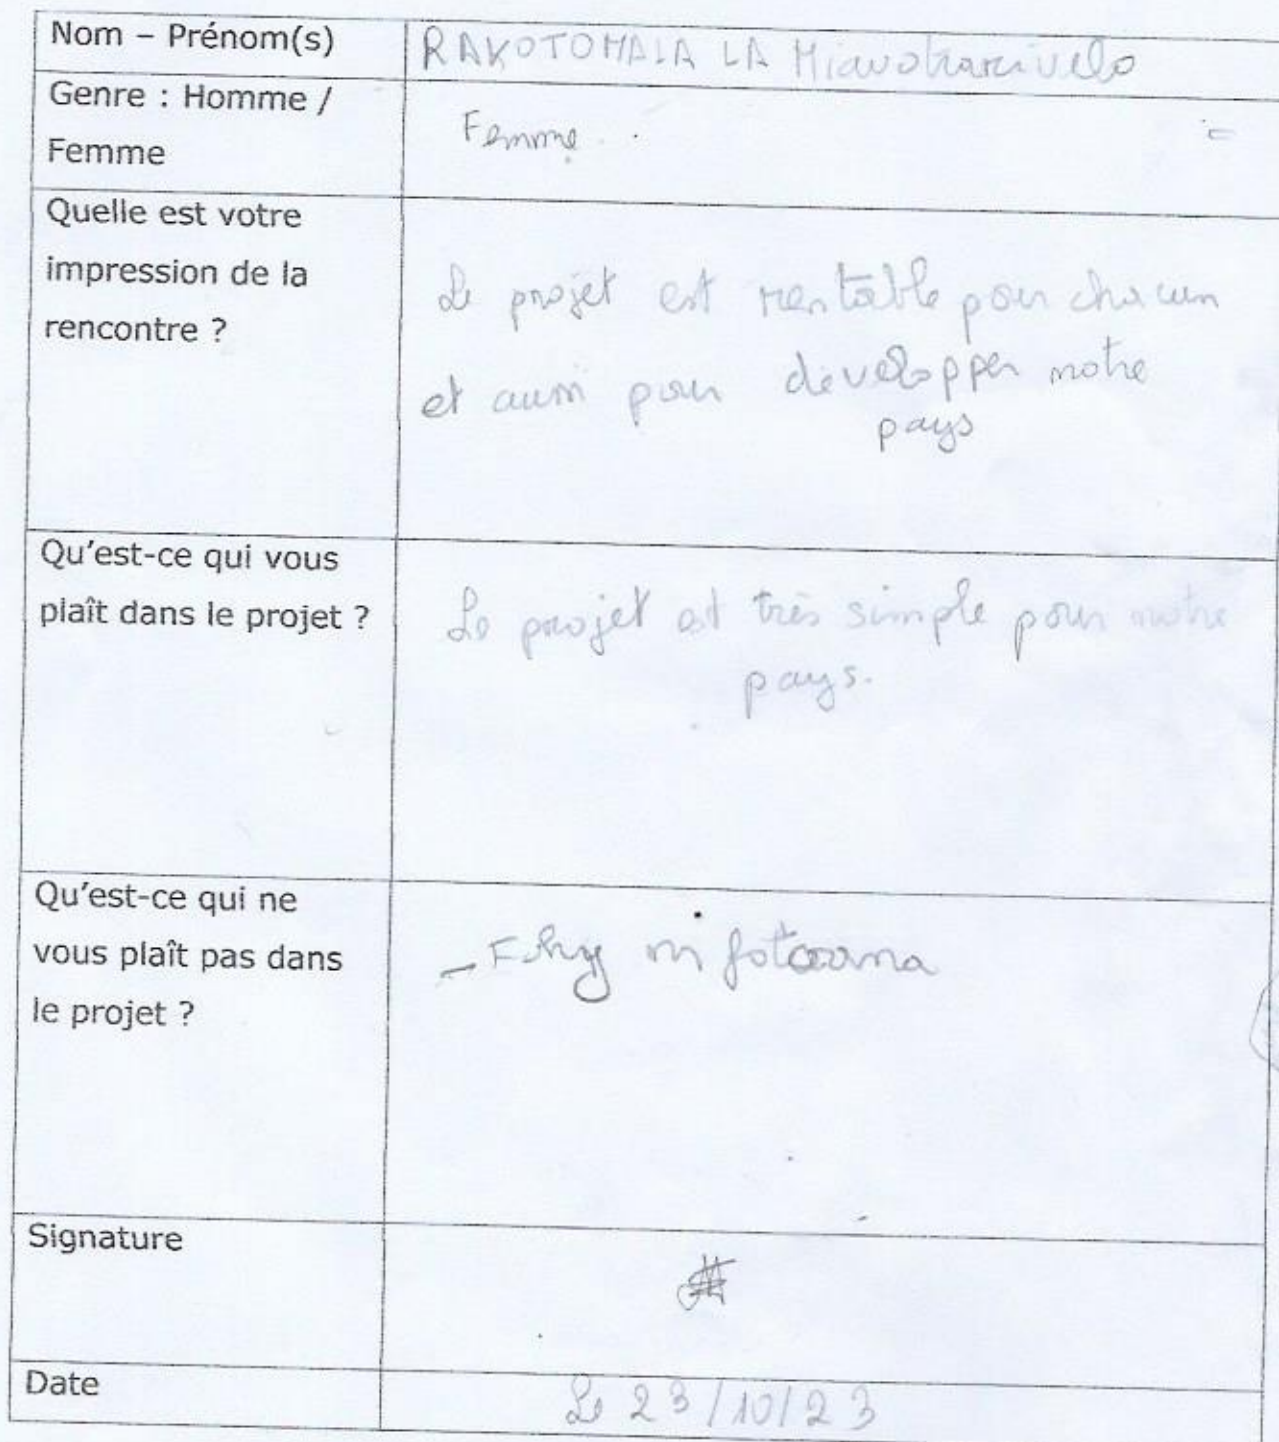 Nom – Prénom(s)
RAKOTOMALALA Miavotrarivelo
Genre : Homme /
Femme
Femme.
Quelle est votre
impression de la
rencontre ?
Le projet est rentable pour chacun
et aussi pour développer notre
pays
Qu'est-ce qui vous
plaît dans le projet ?
Le projet est très simple pour notre
pays.
Qu'est-ce qui ne
vous plaît pas dans
le projet ?
- Fhy ni fotoana
Signature
Date
Le 23/10/23